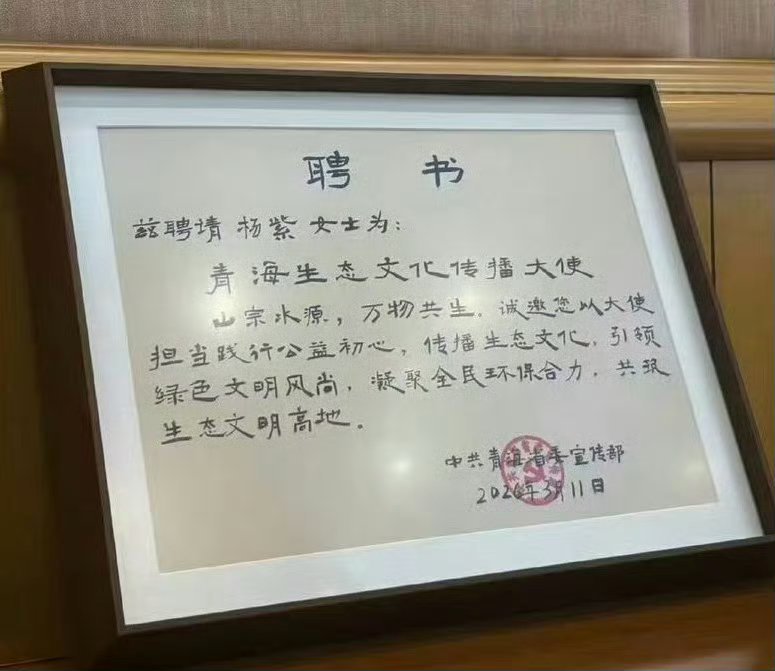 聘 书
兹聘请 杨紫 女士为:
青海生态文化传播大使
山宗水源，万物共生。诚邀您以大使
担当践行公益初心，传播生态文化，引领
绿色文明风尚，凝聚全民环保合力，共筑
生态文明高地。
中共青海省委宣传部
2026年3月11日